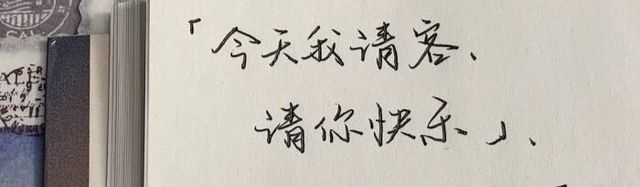 「今天我请客、
请你快乐」、